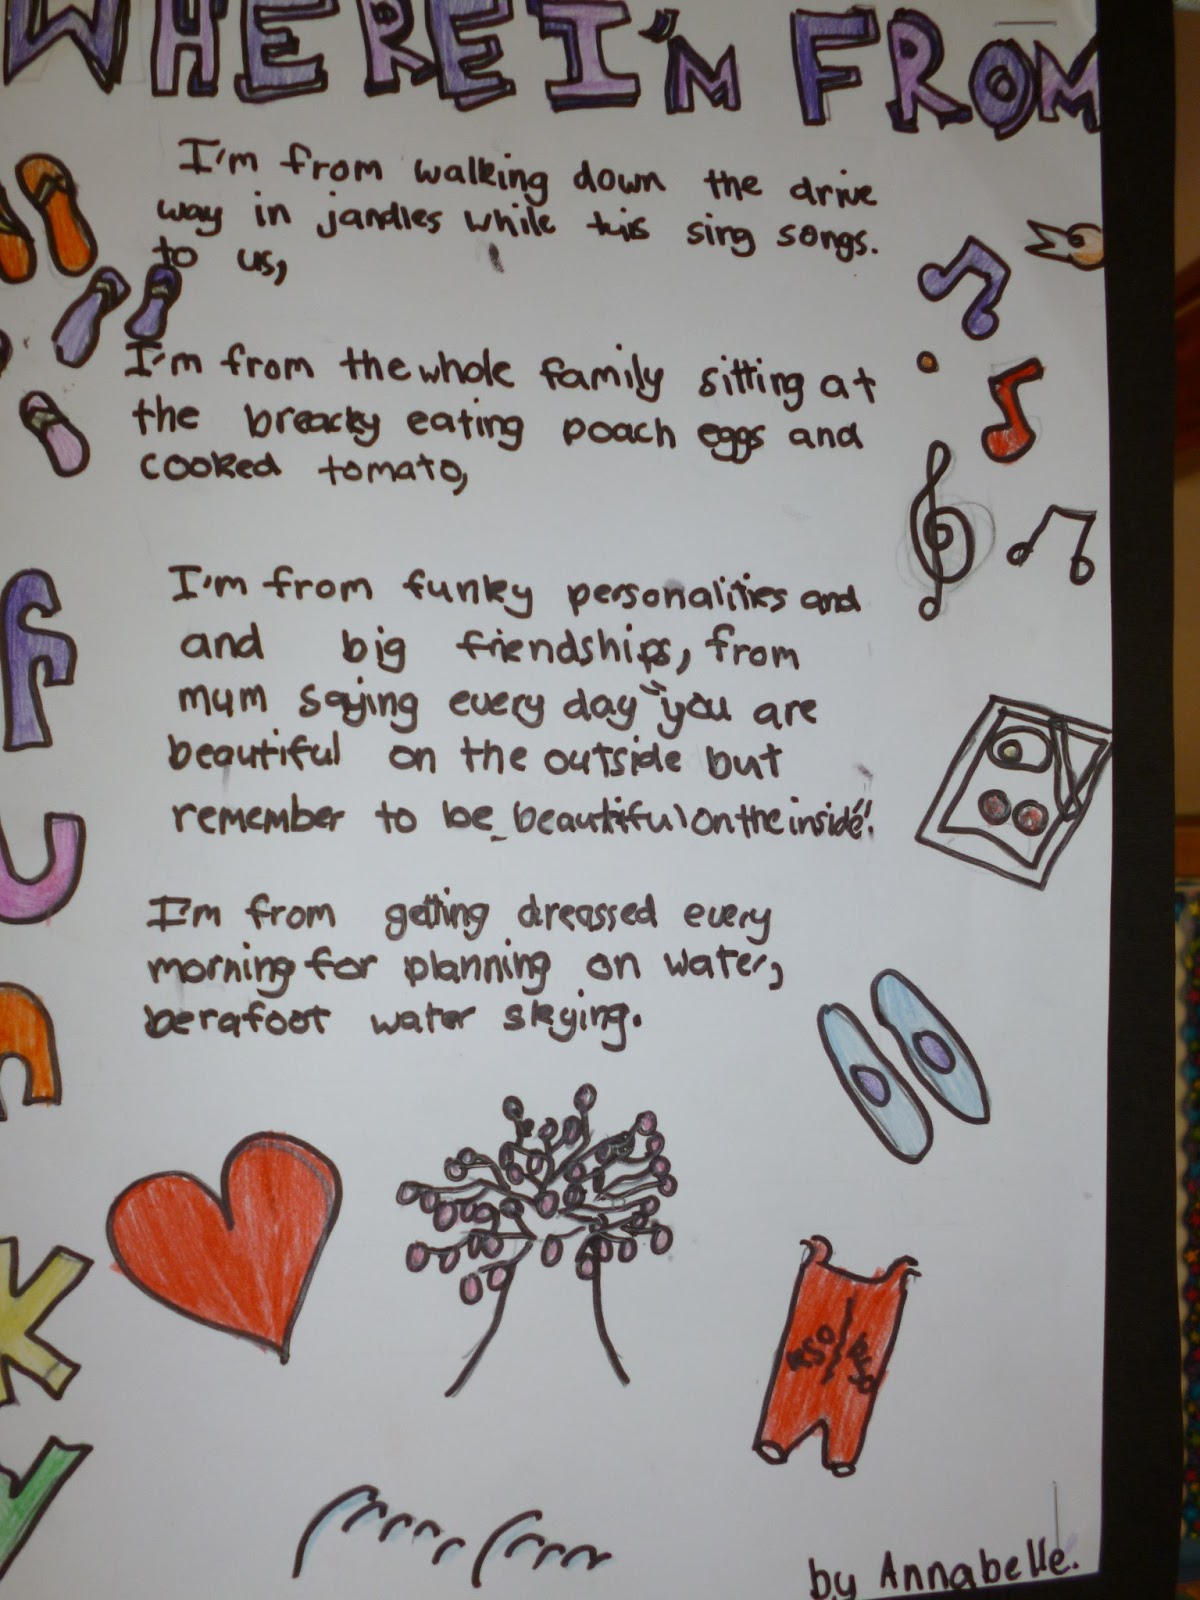 WHERE I'M FROM
I'm from walking down the drive
way in jandles while tuis sing songs.
to us,
I'm from the whole family sitting at
the breacky eating poach eggs and
cooked tomato,
I'm from funky personalities and
and big friendships, from
mum saying every day "you are
beautiful on the outside but
remember to be beautiful on the inside".
I'm from getting dreassed every
morning for planning on water,
berafoot water skying.
FUNKY
by Annabelle.